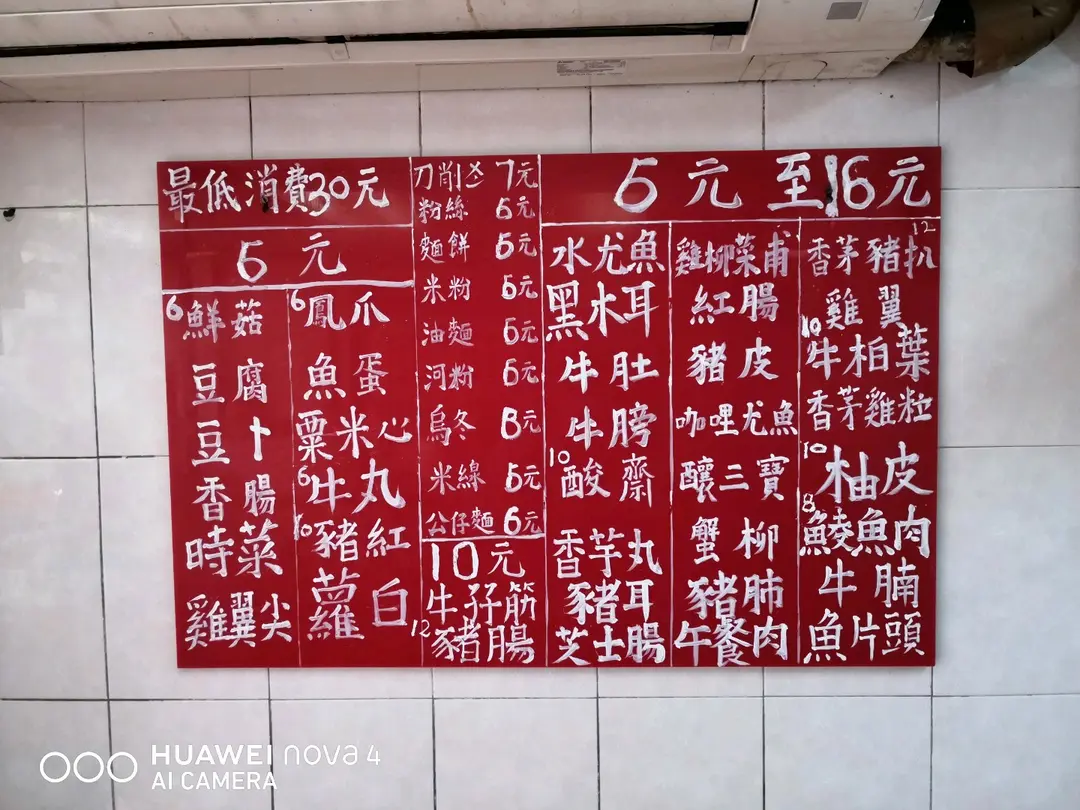 最低消費30元
5元
6鮮菇
豆腐
豆卜
香腸
時菜
雞翼尖
6鳳爪
魚蛋
粟米心
6牛丸
10豬紅
蘿白
刀削 7元
粉絲 6元
麵餅 5元
米粉 5元
油麵 5元
河粉 5元
烏冬 8元
米線 5元
公仔麵 6元
10元
牛孖筋
12豬腸
5元至16元
水尤魚
黑木耳
牛肚
牛膀
10酸齋
香芋丸
豬耳
芝士腸
雞柳菜甫
紅腸
豬皮
咖哩尤魚
釀三寶
蟹柳
豬肺
午餐肉
香茅豬扒12
雞翼
10牛柏葉
香茅雞粒
10柚皮
8鯪魚肉
牛腩
魚片頭
HUAWEI nova 4
AI CAMERA